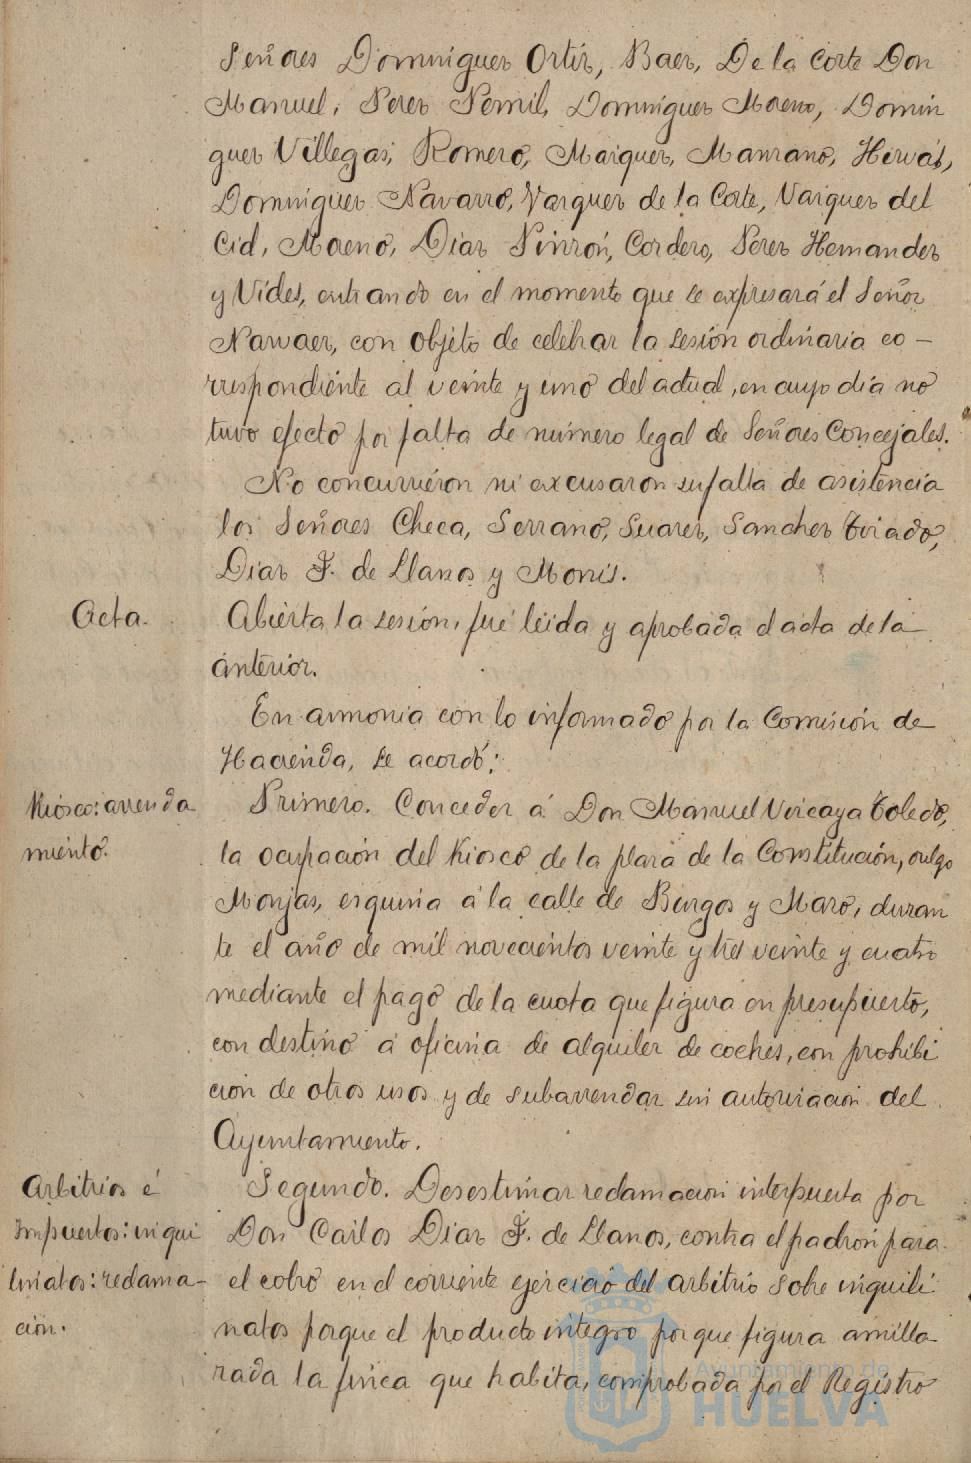 Señores Dominguez Ortiz, Baez, De la Corte Don
Manuel, Perez Pemil, Dominguez Moreno, Domin
guez Villegas, Romero, Maiquez, Manzano, Hervás,
Dominguez Navarro, Vazquez de la Corte, Vazquez del
Cid, Moreno, Diaz Pinzón, Cordero, Perez Hernandez
y Vides, entrando en el momento que se expresará el Señor
Narvaez, con objeto de celebrar la sesión ordinaria co-
rrespondiente al veinte y uno del actual, en cuyo dia no
tuvo efecto por falta de número legal de Señores Concejales.
No concurrieron ni excusaron su falta de asistencia
los Señores Checa, Serrano, Suarez, Sanchez Triado,
Diaz F. de Llanos y Monis.
Acta.
Abierta la sesión, fué leida y aprobada el acta de la
anterior.
En armonia con lo informado por la Comisión de
Hacienda, se acordó:
Kiosco: arrenda
miento.
Primero. Conceder á Don Manuel Vizcaya Toledo,
la ocupación del Kiosco de la plaza de la Constitución, vulgo
Monjas, esquina á la calle de Burgos y Mazo, duran
te el año de mil novecientos veinte y tres veinte y cuatro
mediante el pago de la cuota que figura en presupuesto,
con destino á oficina de alquiler de coches, con prohibi
cion de otros usos y de subarrendar sin autorizacion del
Ayuntamiento.
Arbitrios é
Impuestos: inqui
linatos: reclama-
ción.
Segundo. Desestimar reclamacion interpuesta por
Don Carlos Diaz F. de Llanos, contra el padron para
el cobro en el corriente ejercicio del arbitrio sobre inquili
natos porque el producto integro porque figura amilla
rada la finca que habita, comprobada por el Registro
Ayuntamiento de
HUELVA